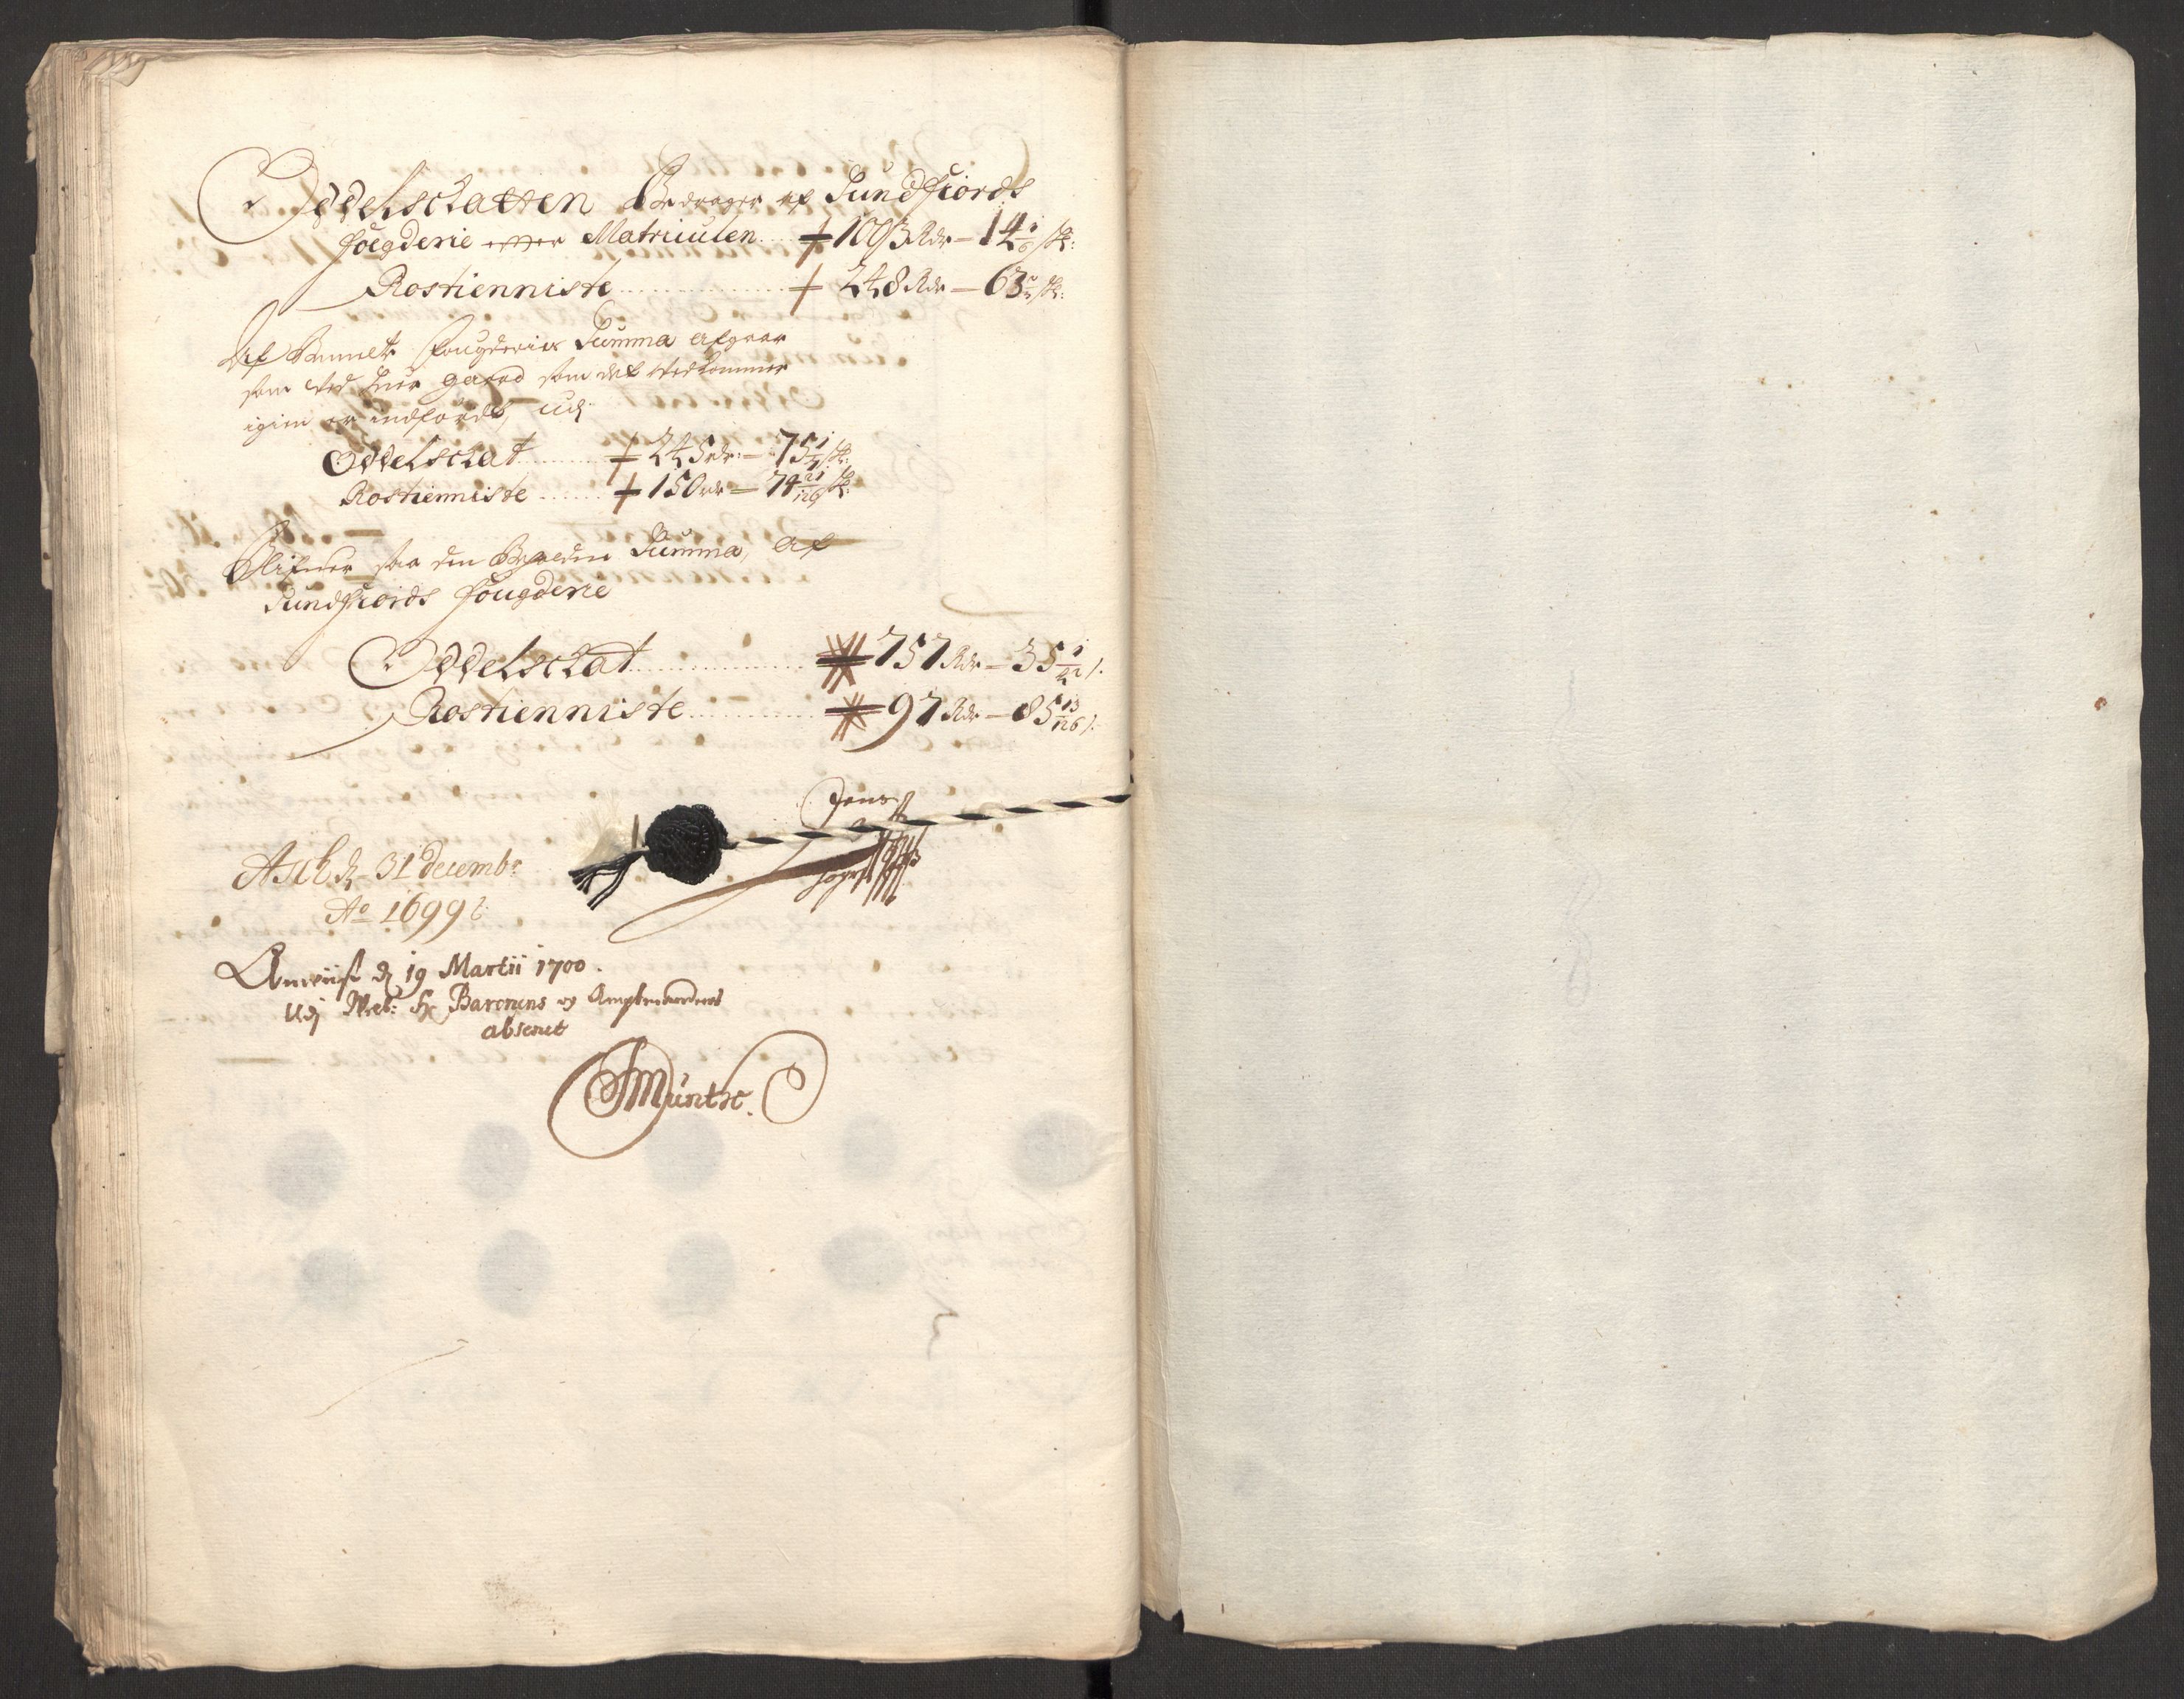 Oddelschatten Bedrager af Sundfiords
fougderie effter Matriculen 1003 Rdr – 14 1/6 sk:
Rostienniste 248 Rdr – 63 sk:
Af Bemelte fougderies Summa afgaar
som ved huer gaard som det vedkommer
igien er indførdt, udj
Oddelschat 245 rdr: – 75 sk:
Rostienniste 150 rdr – 74 21/126 sk:
Blifuer saa den Summa, af
Sundfiords fougderie
Oddelschat 757 Rdr – 35 1/42 s.
Rostienniste 97 Rdr – 85 13/126 s.
Jens
Ask d. 31 decembr
Ao 1699
Anviist d. 19 Martii 1700.
Udj Hr Barcruns og Amptmandens
absence
Münthe.